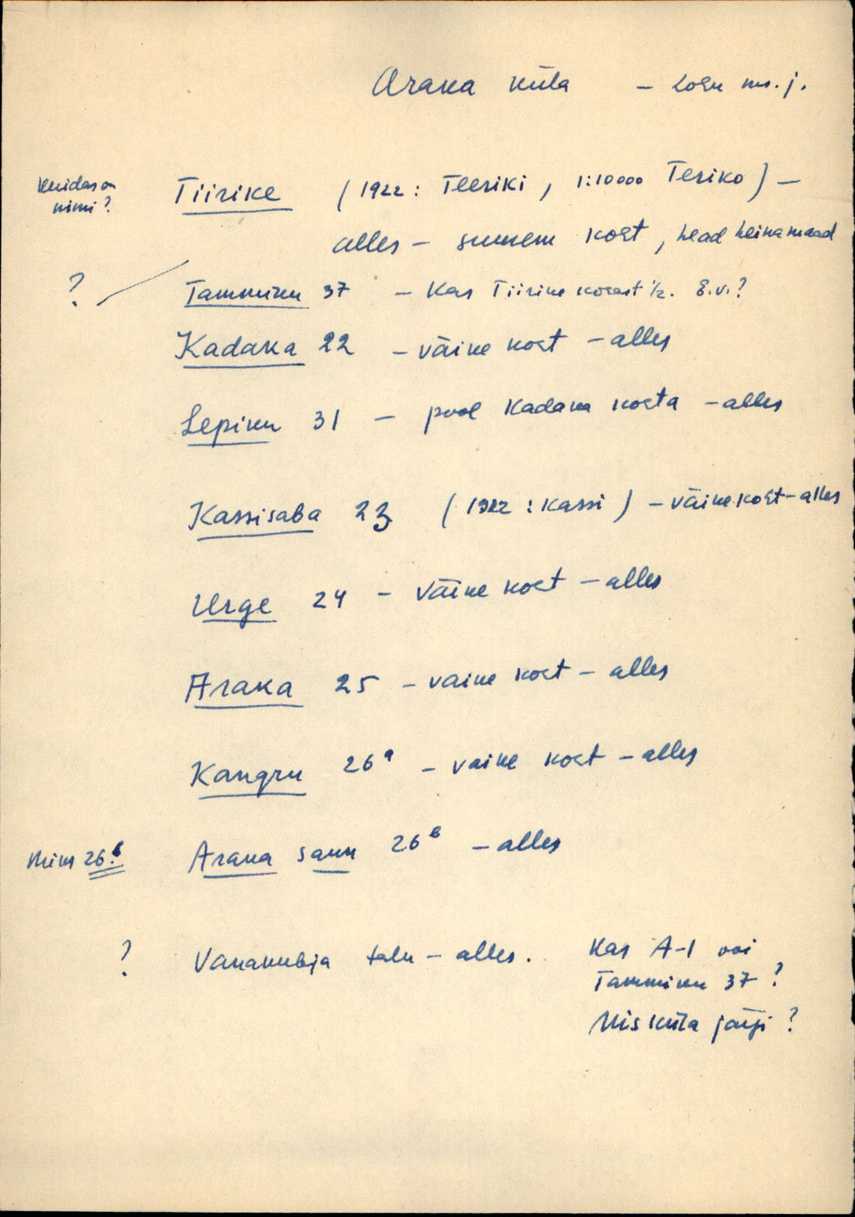 Araka küla – Lohu ms. j.
Kuidas on nimi?
Tiirike (1922: Teeriki, 1:10000 Teriko) –
alles – suurem koht, head heinamaad
? Tammiku 37 – Kas Tiirike kohast 1/2. E.v.?
Kadaka 22 – väike koht – alles
Lepiku 31 – pool Kadaka kohta – alles
Kassisaba 23 (1922: Kassi) – väike koht – alles
Urge 24 – väike koht – alles
Araka 25 – vaike koht – alles
Kangru 26a – vaike koht – alles
Miks 26.b Araka saun 26b – alles
? Vanakubja talu – alles. Kas A-1 või
Tammiku 37?
Mis küla järgi?